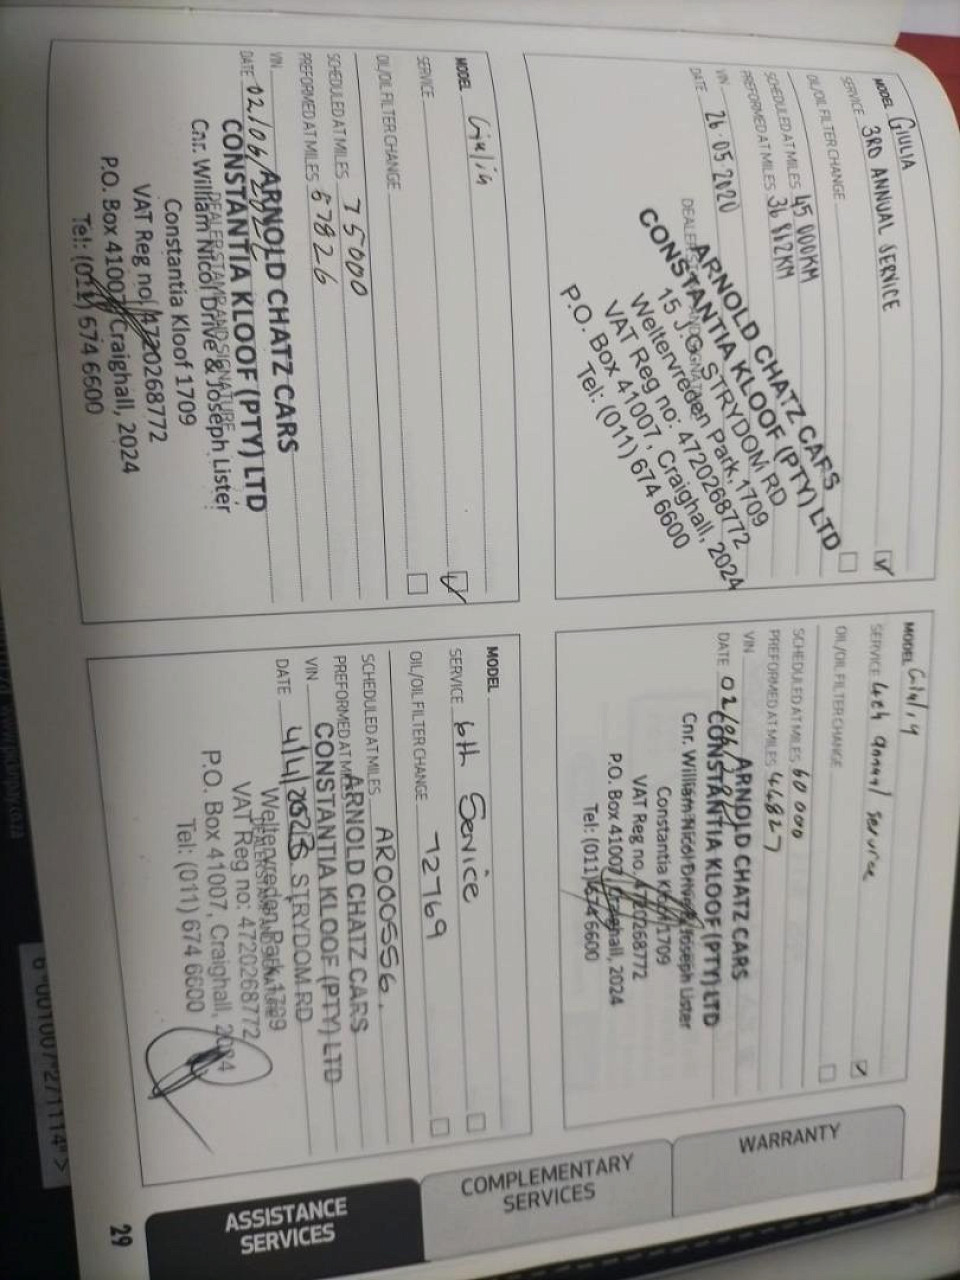 MODEL GIULIA
SERVICE 3RD ANNUAL SERVICE
OIL/OIL FILTER CHANGE
SCHEDULED AT MILES 45 000KM
PREFORMED AT MILES 36 812KM
VIN
DATE 26.05.2020
DEALER STAMP AND SIGNATURE
ARNOLD CHATZ CARS
CONSTANTIA KLOOF (PTY) LTD
15 J.G. STRYDOM RD
Weltervreden Park, 1709
VAT Reg no: 4720268772
P.O. Box 41007, Craighall, 2024
Tel: (011) 674 6600
MODEL Giulia
SERVICE 4th annual service
OIL/OIL FILTER CHANGE
SCHEDULED AT MILES 60 000
PREFORMED AT MILES 46827
VIN
DATE 02/06/
ARNOLD CHATZ CARS
CONSTANTIA KLOOF (PTY) LTD
Cnr. William Nicol Drive & Joseph Lister
Constantia Kloof 1709
VAT Reg no. 4720268772
P.O. Box 41007, Craighall, 2024
Tel: (011) 674 6600
MODEL Giulia
SERVICE
OIL/OIL FILTER CHANGE
SCHEDULED AT MILES 75000
PREFORMED AT MILES 57826
VIN
DATE 02/06/
ARNOLD CHATZ CARS
CONSTANTIA KLOOF (PTY) LTD
DEALER STAMP AND SIGNATURE
Cnr. William Nicol Drive & Joseph Lister
Constantia Kloof 1709
VAT Reg no. 4720268772
P.O. Box 41007 Craighall, 2024
Tel: (011) 674 6600
MODEL
SERVICE 6th Service
OIL/OIL FILTER CHANGE 72769
SCHEDULED AT MILES ARO0556.
PREFORMED AT MILES
VIN
DATE 4/4/2023
ARNOLD CHATZ CARS
CONSTANTIA KLOOF (PTY) LTD
STRYDOM RD
Weltervreden Park, 1709
DEALER STAMP AND SIGNATURE
VAT Reg no: 4720268772
P.O. Box 41007, Craighall, 2024
Tel: (011) 674 6600
WARRANTY
COMPLEMENTARY
SERVICES
ASSISTANCE
SERVICES
29